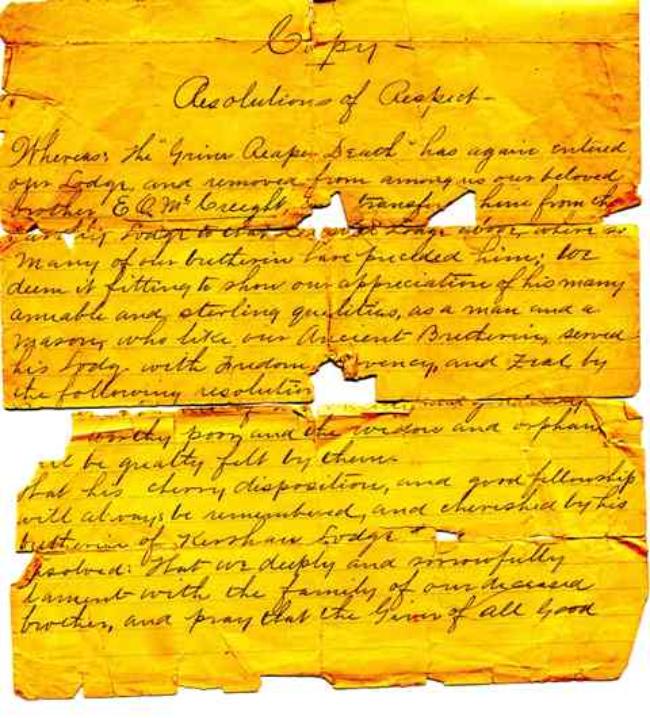 Copy —
Resolutions of Respect —
Whereas; the "Grim Reaper Death" has again entered
our Lodge, and removed from among us our beloved
brother, E.O. McCreight to transfer him from the
Lodge to Lodge above, where so
many of our bretherin have preceded him; We
deem it fitting to show our appreciation of his many
amiable and sterling qualities, as a man and a
Mason, who like our Ancient Bretherin, served
his Lodge with Fredom, vency, and Zeal by
the following resolution
worthy poor and the widow and orphan
will be greatly felt by them.
That his cherry disposition, and good fellowship
will always be remembered, and cherished by his
bretherin of Kershaw Lodge
esolved: That we deeply and sorrowfully
lament with the family of our deceased
brother, and pray that the Giver of all Good